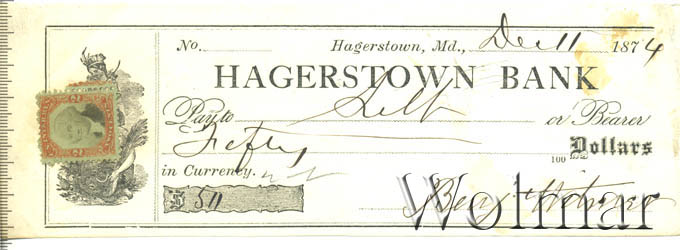 No. Hagerstown, Md., Dec 11 1874
HAGERSTOWN BANK
Pay to Self or Bearer
Fifty 100 Dollars
in Currency.
$ 50
Wolmar